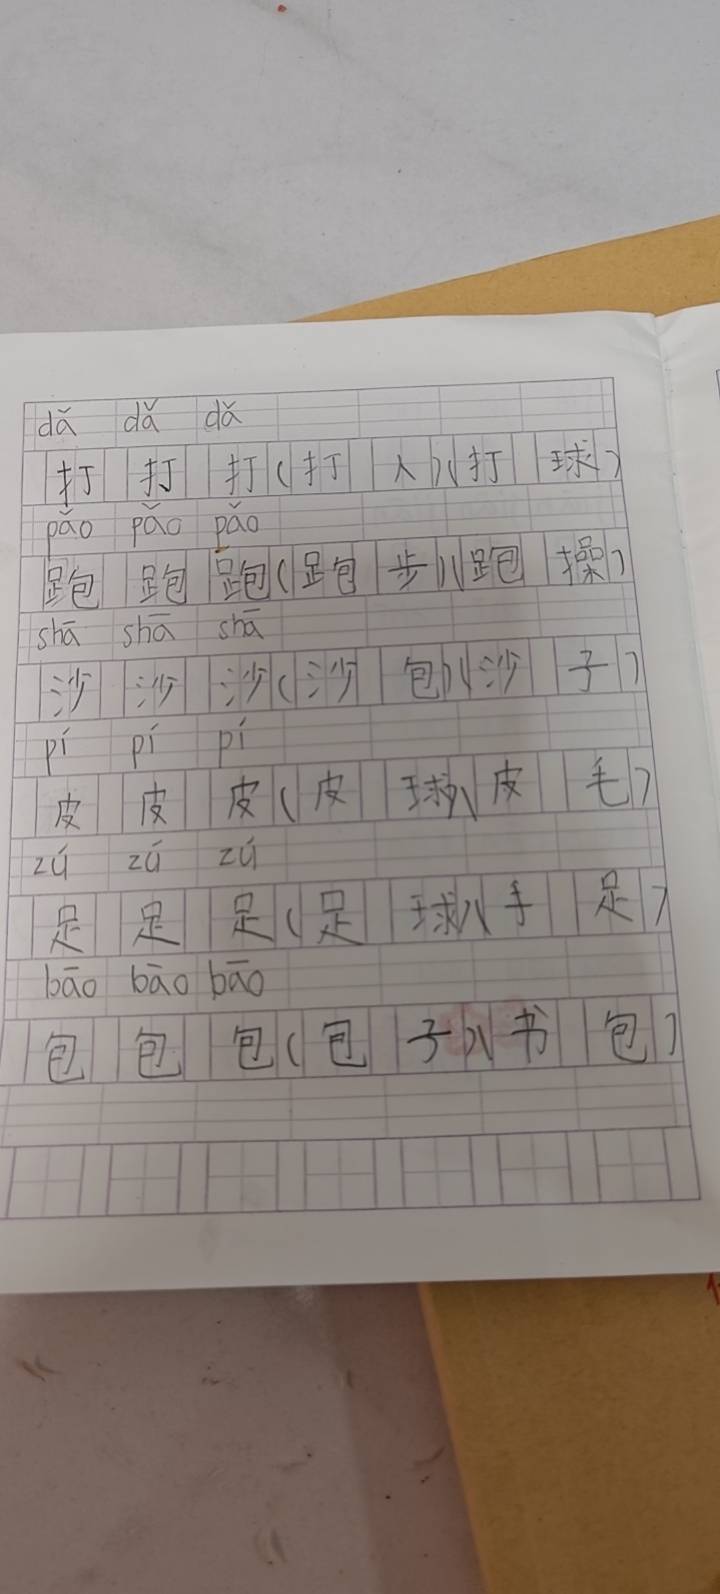 dǎ dǎ dǎ
打 打 打(打人)(打球)
pǎo pǎo pǎo
跑 跑 跑(跑步)(跑操)
shā shā shā
沙 沙 沙(沙包)(沙子)
pí pí pí
皮 皮 皮(皮球)(皮毛)
zú zú zú
足 足 足(足球)(手足)
bāo bāo bāo
包 包 包(包子)(书包)